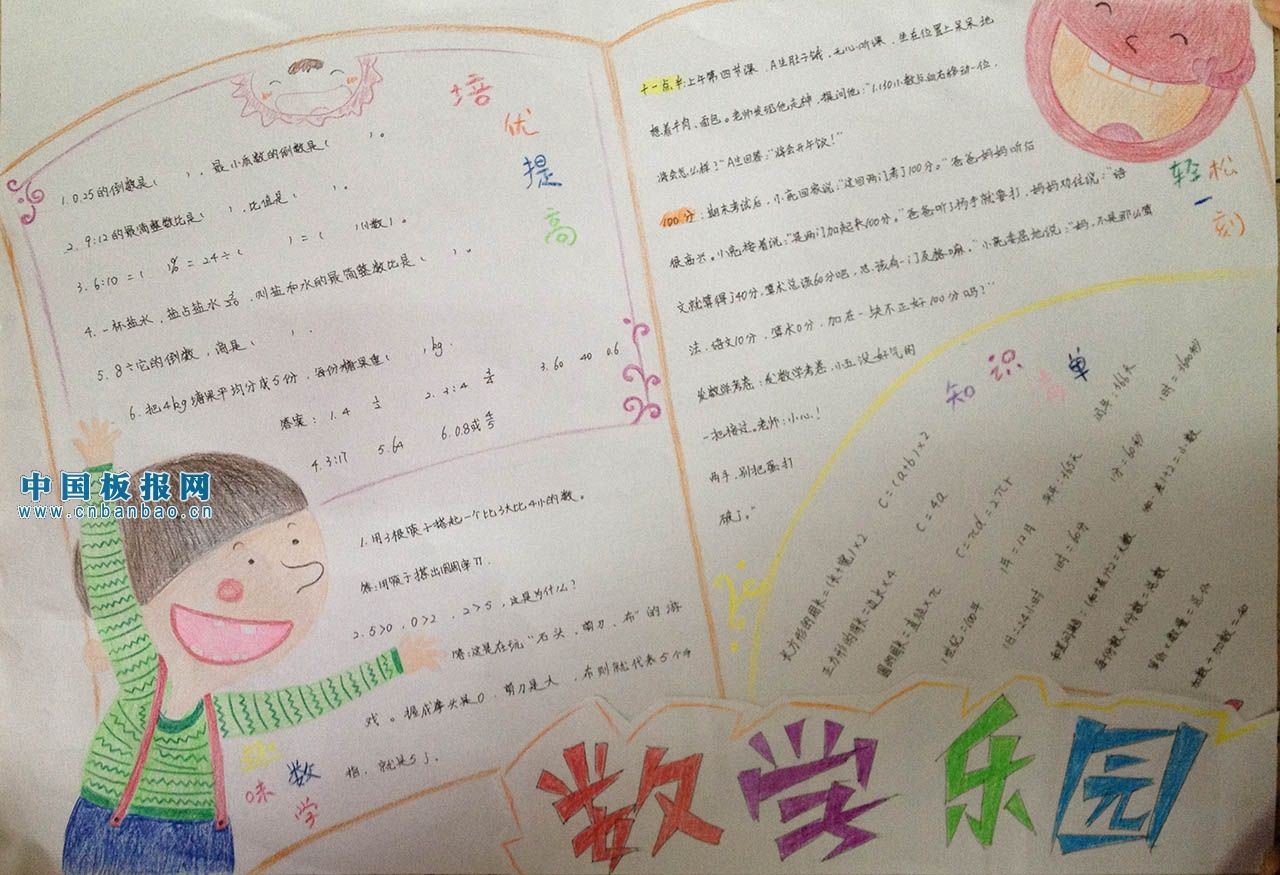 培优提高
1. 0.25的倒数是( ), 最小质数的倒数是( )。
2. 9:12的最简整数比是( ), 比值是( )。
3. 6:10 = ( )% = 24÷( ) = ( )(小数)。
4. 一杯盐水, 盐占盐水3/20, 则盐和水的最简整数比是( )。
5. 8÷它的倒数, 商是( ).
6. 把4kg糖果平均分成5份, 每份糖果重( )kg.
答案: 1. 4 1/2 2. 3:4 3/4 3. 60 40 0.6
4. 3:17 5. 64 6. 0.8或4/5
中国板报网
www.cnbanbao.cn
1. 用3根筷子搭起一个比3大比4小的数。
答: 用筷子搭出圆周率π.
2. 5>0, 0>2, 2>5, 这是为什么?
答: 这是在玩“石头、剪刀、布”的游
戏。握成拳头是0, 剪刀是2, 布则就代表5个手
指, 就是5了。
趣味数学
十一点半: 上午第四节课, A生肚子饿, 无心听课, 坐在位置上呆呆地
想着牛肉、面包。老师发现他走神, 提问他: “1.130小数点向右移动一位,
将会怎么样?” A生回答: “将会开午饭!”
轻松一刻
100分: 期末考试后, 小亮回家说: “这回两门考了100分。”爸爸妈妈听后
很高兴。小亮接着说: “是两门加起来100分。”爸爸听了扬手就要打, 妈妈劝住说: “语
文就算得了40分, 算术总该60分吧, 总该有一门及格嘛。”小亮委屈地说: “妈, 不是那么算
法, 语文10分, 算术0分, 加在一块不正好100分吗?”
发数学考卷: 发数学考卷, 小五没好气的
一把接过。老师: 小心!
两手, 别把蛋打
破了。”
知识清单
长方形的周长=(长+宽)×2 C=(a+b)×2
正方形的周长=边长×4 C=4a
圆的周长=直径×π C=πd=2πr
1世纪=100年 1年=12月 平年:365天 闰年:366天
1日=24小时 1时=60分 1分=60秒 1时=3600秒
和差问题:(和+差)÷2=大数 (和-差)÷2=小数
每份数×份数=总数
单价×数量=总价
加数+加数=和
数学乐园